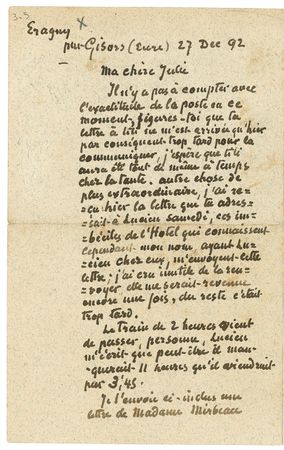 3.3
Eragny
par Gisors (Eure) 27 Dec 92
Ma chère Julie
Il n'y a pas à compter avec
l'exactitude de la poste en ce
moment, figures-toi que ta
lettre à titi ne m'est arrivée qu'hier
par conséquent trop tard pour la
communiquer, j'espère que titi
aura été tout de même à temps
chez la tante. autre chose de
plus extraordinaire, j'ai re-
çu hier la lettre que tu adres-
sait à Lucien samedi, ces im-
béciles de l'Hotel qui connaissent
cependant mon nom, ayant Lu-
cien chez eux, m'envoyent cette
lettre; j'ai cru inutile de la ren-
voyer elle me serait revenue
encore une fois, du reste c'était
trop tard.
Le train de 2 heures vient
de passer, personne, Lucien
m'écrit que peut-être il man-
querait 11 heures qu'il viendrait
par 3,45.
Je t'envoie ci-inclus une
lettre de Madame Mirbeau